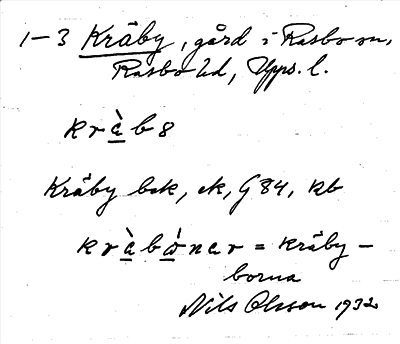 1–3 Kråby, gård i Rasbo sn,
Rasbo hd, Upps. l.
k r à̲ b 8
Kråby bek, ek, G 84, kb
k r à̲ b ò̲ n e r = kråby–
borna
Nils Olsson 1932